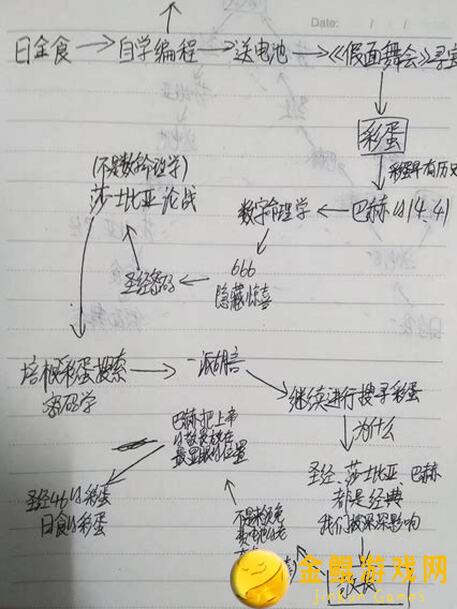 Date: / /
日全食→自学编程→送电池→《假面舞会》寻宝
彩蛋
彩蛋早有历史
巴赫的14、41
数字命理学
(不是数字命理学)
莎士比亚论战
666
隐藏惊喜
圣经密码
培根彩蛋搜索
密码学
一派胡言
继续进行搜寻彩蛋
为什么
圣经、莎士比亚、巴赫
都是经典
我们被深深影响
巴赫把上帝
的数字放在
最显眼的位置
圣经46的彩蛋
日食的彩蛋
不是来免
金鲲游戏网
JinKun Games